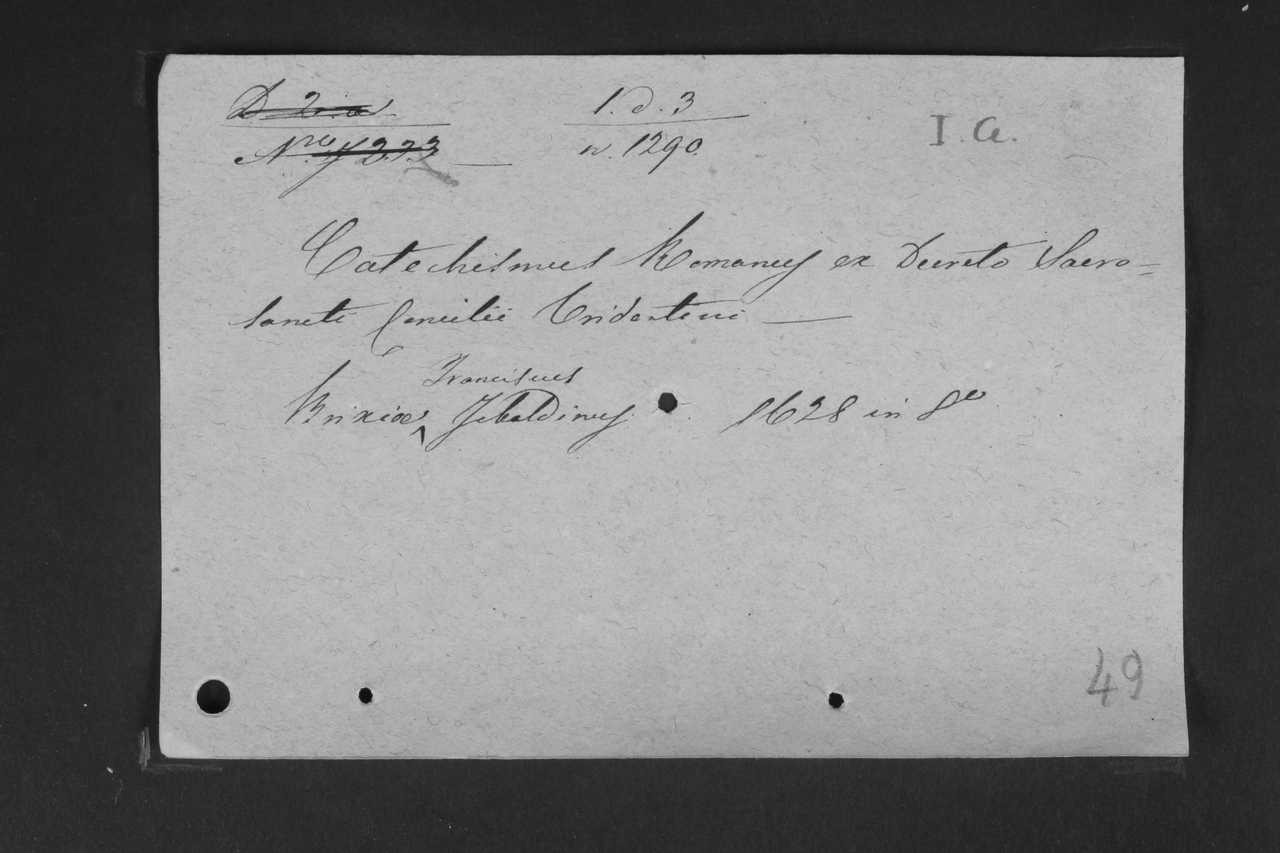 D 2. a. 1. d. 3 I. a.
Nro 1273 n. 1290.
Catechismus Romanus ex Decreto Sacro=
sancti Concilii Tridentini —
Franciscus
Brixiae Tebaldinus. 1628 in 8o
49